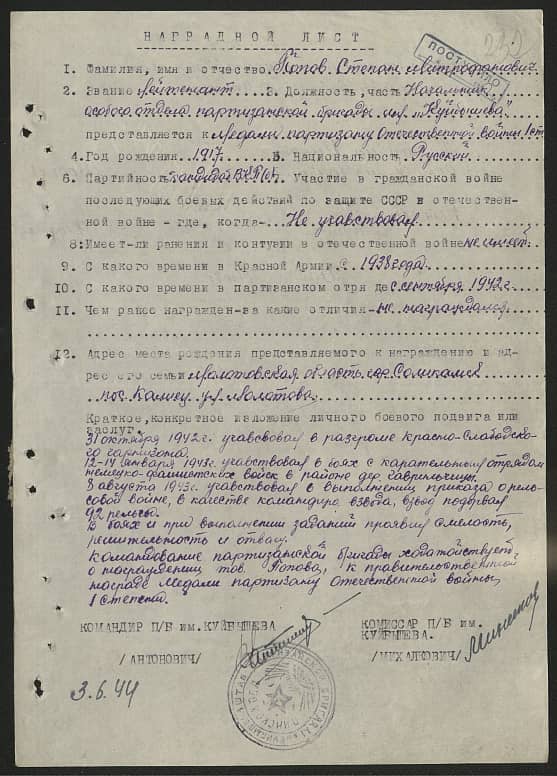 НАГРАДНОЙ ЛИСТ
1. Фамилия, имя и отчество Попов Степан Митрофанович
2. Звание лейтенант 3. Должность, часть Начальник
особого отдела партизанской бригады им. "Куйбышева"
представляется к медали партизану Отечественной войны I ст
4. Год рождения 1917 5. Национальность Русский
6. Партийность кандидат ВКП(б) 7. Участие в гражданской войне
последующих боевых действий по защите СССР и отечествен-
ной войне - где, когда- Не учавствовал
8. Имеет-ли ранения и контузии в отечественной войне не имеет
9. С какого времени в Красной Армии с 1938 года
10. С какого времени в партизанском отря де с сентября 1942 г
11. Чем ранее награжден-за какие отличия- не награждался
12. Адрес места рождения представляемого к награждению и ад-
рес его семьи Молотовская область гор. Соликамск
пос. ул. Молотова
Краткое, конкретное изложение личного боевого подвига или
заслуг.
31 октября 1942 г. учавсвовал в разгроме Красно-Слабодско-
го гарнизона.
12-14 января 1943г. учавствовал в боях с карательным отрядом
немецко-фашистских войск в районе дер Гаврильчицы.
8 августа 1943г. учавствовал в выполнении приказа о рель-
совой войне, в качестве командира взвода, взвод подорвал
92 рельсы.
В боях и при выполнении заданий проявил смелость,
решительность и отвагу.
Командование партизанской бригады ходатайствует
о награждении тов. Попова, к правительственной
награде Медали партизану Отечественной войны,
I степени.
КОМАНДИР П/Б им. КУЙБЫШЕВА КОМИССАР П/Б им
КУЙБЫШЕВА.
/АНТОНОВИЧ/ /МИХАЛКОВИЧ/
3.6.44